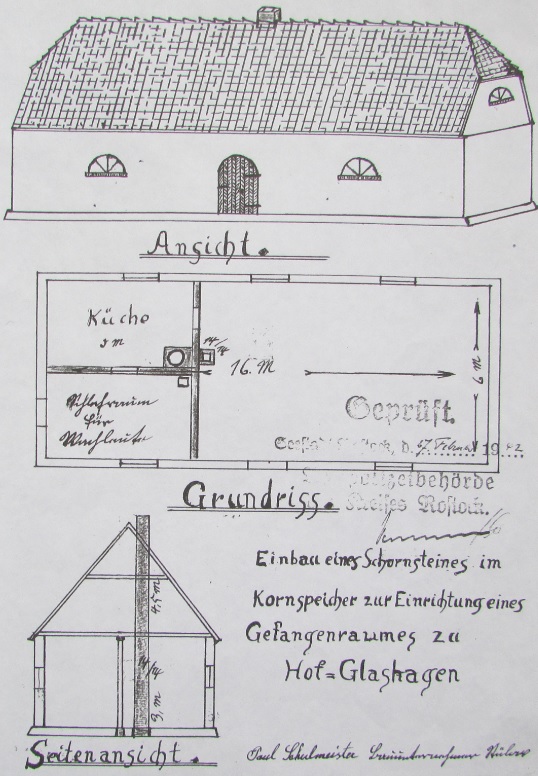 Ansicht.
Küche
3 m
14/14
16. M
6 m
Schlafraum
für
Wachleute
Geprüft.
Seestadt Rostock, d. 17. Februar 1942
Baupolizeibehörde
Kreises Rostock.
Grundriss.
4,5 m
14/14
3, m
Einbau eines Schornsteines im
Kornspeicher zur Einrichtung eines
Gefangenraumes zu
Hof=Glashagen
Seitenansicht.
Paul Schulmeister Bauunternehmer